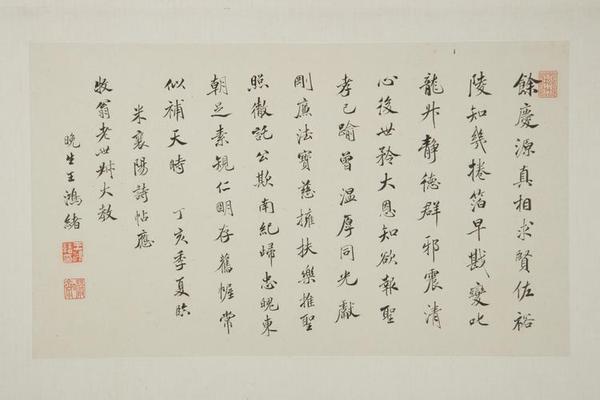 餘慶源真相求賢佐裕
陵知幾捲箔早戡變叱
龍升靜德群邪震清
心後世矜大恩知欲報聖
孝已踰曾溫厚同光獻
剛廉法寶慈擁扶樂推聖
照徹託公欺南紀歸忠魄東
朝足素規仁明存舊幄常
似補天時 丁亥季夏臨
米襄陽詩帖應
牧翁老世叔大教
晚生王鴻緒